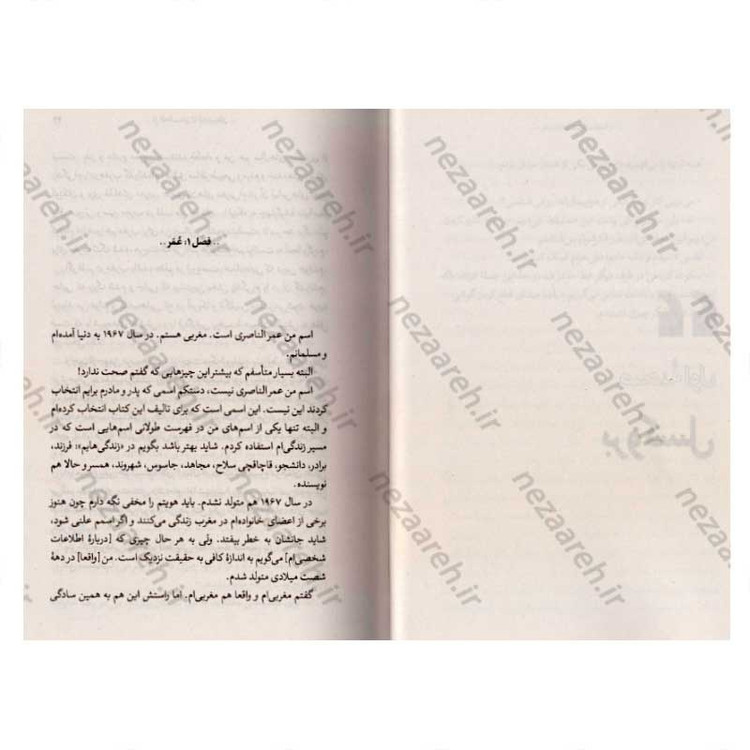 .. فصل ۱: عُمَر ..
اسم من عمر الناصری است. مغربی هستم. در سال ۱۹۶۷ به دنیا آمده‌ام
و مسلمانم.
البته بسیار متأسفم که بیشتر این چیزهایی که گفتم صحت ندارد!
اسم من عمر الناصری نیست، دستکم اسمی که پدر و مادرم برایم انتخاب
کردند این نیست. این اسمی است که برای تالیف این کتاب انتخاب کرده‌ام
و البته تنها یکی از اسم‌های من در فهرست طولانی اسم‌هایی است که در
مسیر زندگی‌ام استفاده کردم. شاید بهتر باشد بگویم در «زندگی‌هایم»: فرزند،
برادر، دانشجو، قاچاقچی سلاح، مجاهد، جاسوس، شهروند، همسر و حالا هم
نویسنده.
در سال ۱۹۶۷ هم متولد نشدم. باید هویتم را مخفی نگه دارم چون هنوز
برخی از اعضای خانواده‌ام در مغرب زندگی می‌کنند و اگر اسمم علنی شود،
شاید جانشان به خطر بیفتد. ولی به هر حال چیزی که [دربارهٔ اطلاعات
شخصی‌ام] می‌گویم به اندازهٔ کافی به حقیقت نزدیک است. من [واقعا] در دههٔ
شصت میلادی متولد شدم.
گفتم مغربی‌ام و واقعا هم مغربی‌ام. اما راستش این هم به همین سادگی
nezaareh.ir
nezaareh.ir
nezaareh.ir
nezaareh.ir
nezaareh.ir
nezaareh.ir
nezaareh.ir
nezaareh.ir